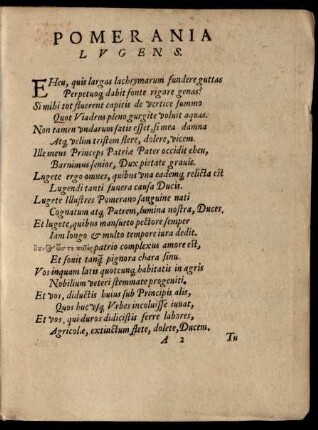 POMERANIA
LVGENS.
EHeu, quis largas lachrymarum fundere guttas
Perpetuoq́; dabit fonte rigare genas?
Si mihi tot fluerent capitis de vertice summo
Quot Viadrus pleno gurgite voluit aquas.
Non tamen vndarum satis esset, si mea damna
Atq́; velim tristem flere, dolere, vicem.
Ille meus Princeps Patriæ Pater occidit eheu,
Barnimus senior, Dux pietate grauis.
Lugete ergo omnes, quibus vna eademq́; relicta est
Lugendi tanti funera causa Ducis.
Lugete Illustres Pomerano sanguine nati
Cognatum atq́; Patrem, lumina nostra, Duces,
Et lugete, quibus mansueto pectore semper
Iam longo & multo tempore iura dedit.
patrio complexus amore est,
Et fouit tanq́; pignora chara sinu.
Vos inquam latis quotcunq́; habitatis in agris
Nobilium veteri stemmate progeniti.
Et vos, diductis huius sub Principis alis,
Quos huc vsq́; Vrbes incoluisse iuuat,
Et vos, qui duros didicistis ferre labores,
Agricolæ, extinctum flete, dolete, Ducem.
A 2 Tu